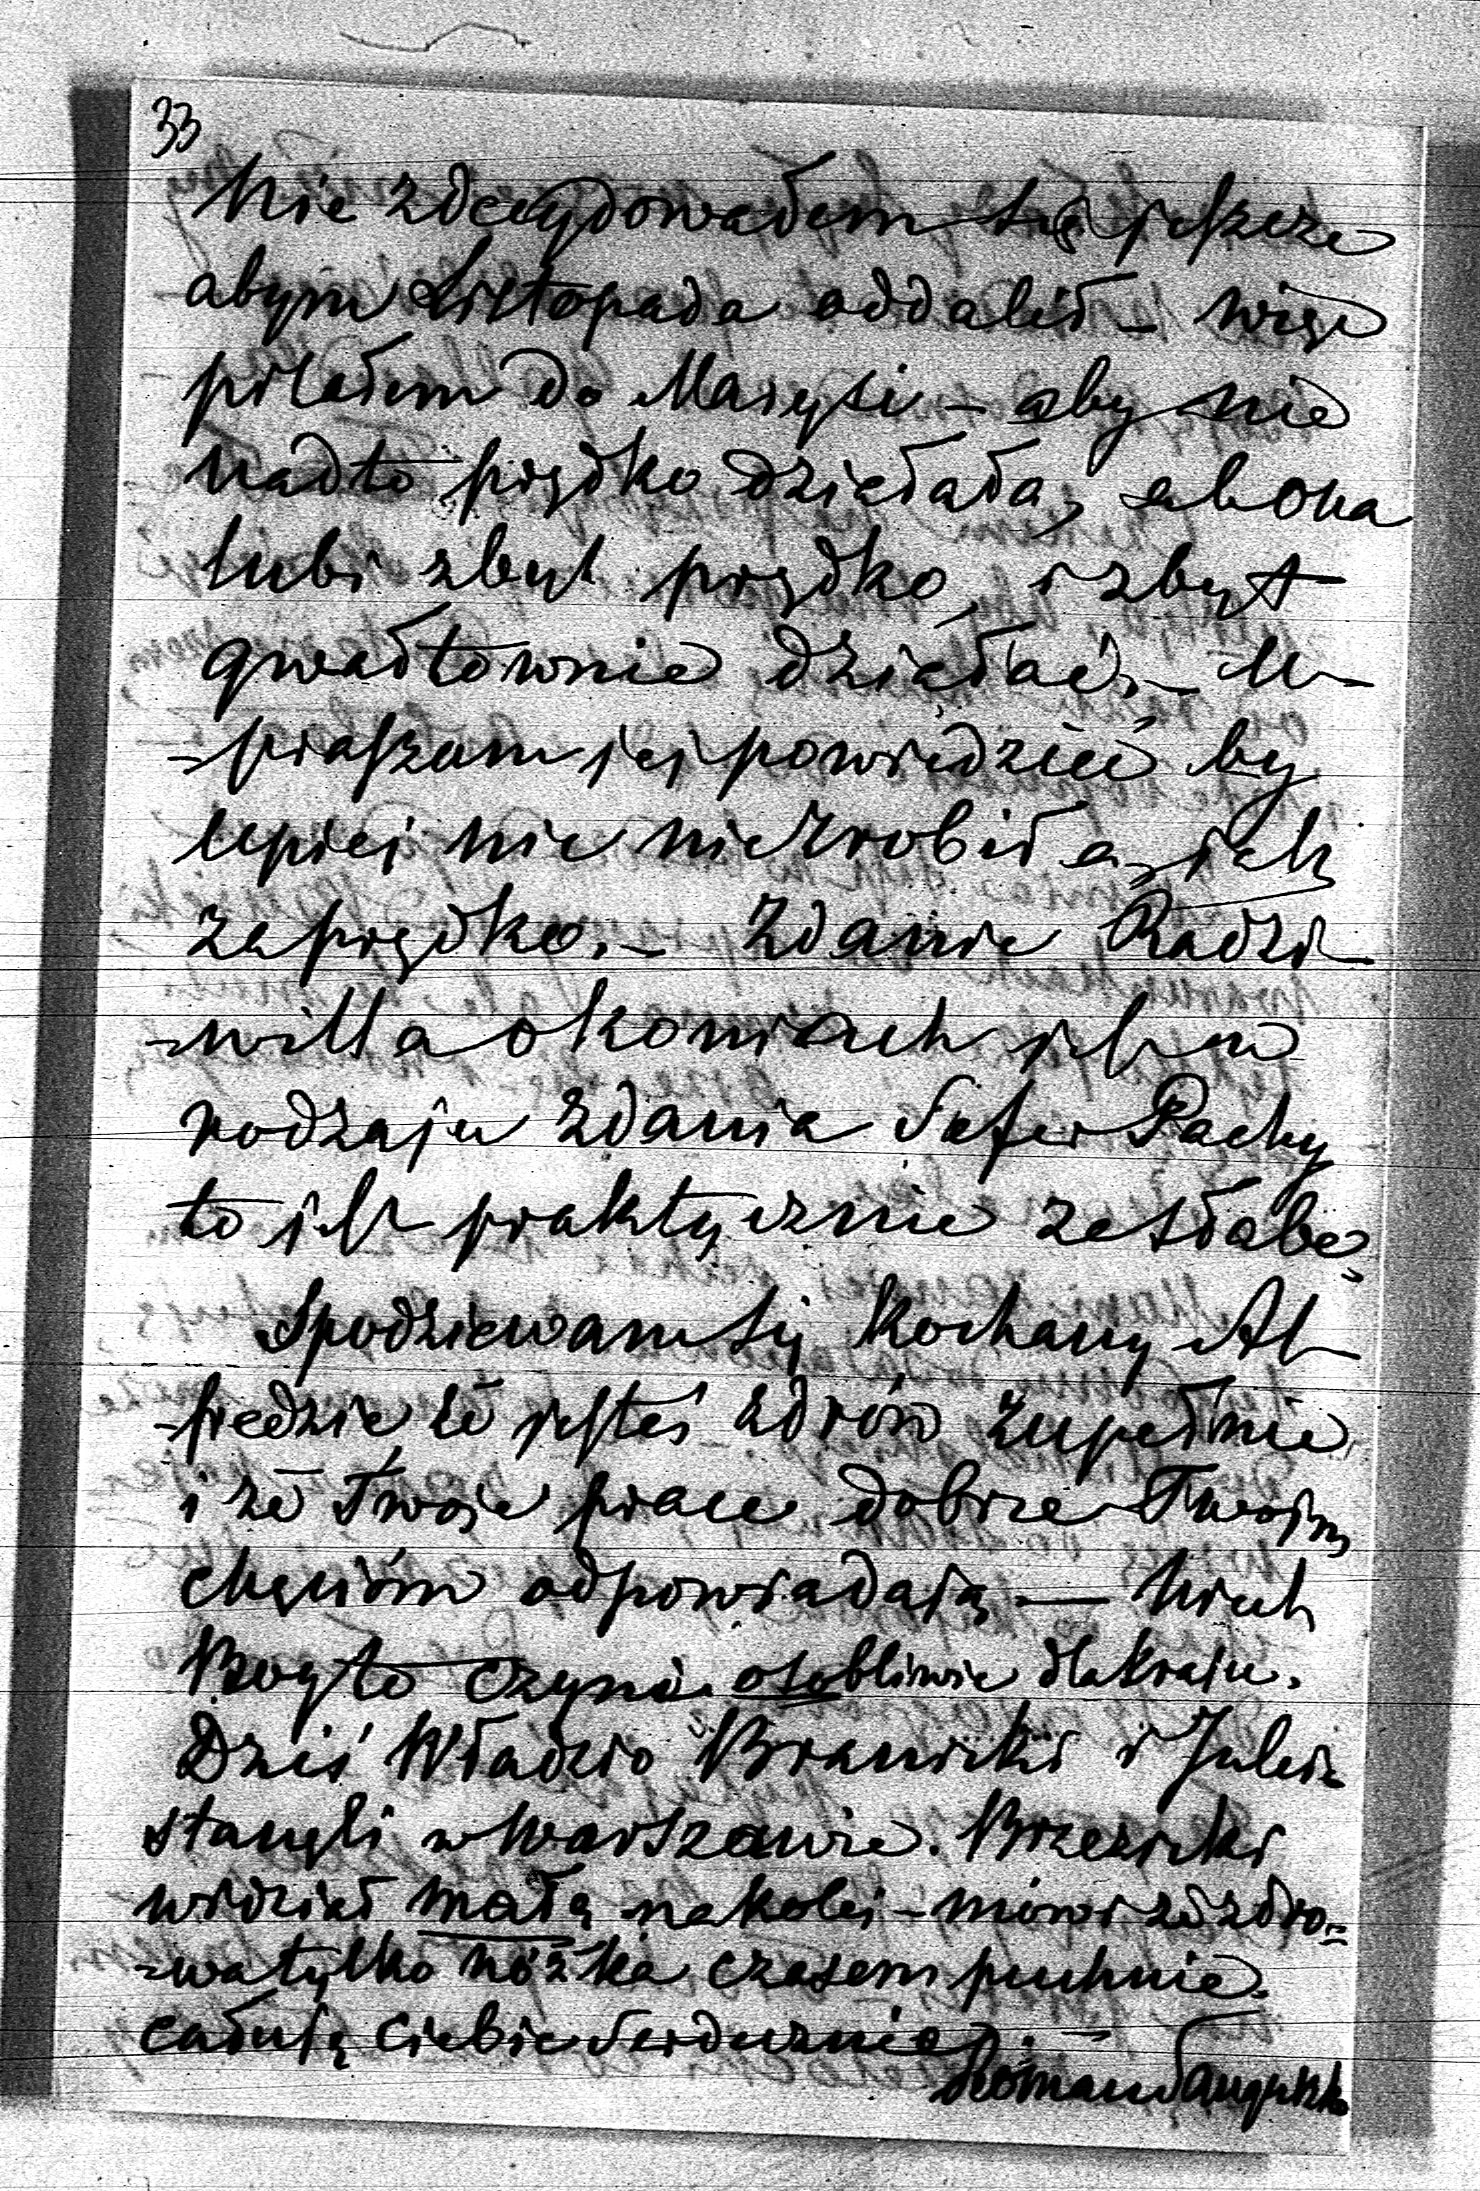 33
Nie zdecydowałem się jeszcze
abym Listopada oddalił – więc
pisałem do Marysi – aby nie
nadto prędko działała, a bo ona
lubi zbyt prędko, i zbyt
gwałtownie działać. – U-
-praszam jej powiedzieć by
lepiej nic nie zrobiła, jak
za prędko. – Zdanie Radzi-
-wiłła o koniach jest w
rodzaju zdania Sefer Pachy
to jest praktycznie za słabe,
Spodziewam się Kochany Al-
-fredzie że jesteś zdrów zupełnie
i że Twoje prace dobrze Twojm
chęcióm odpowiadają — Niech
Bog to czyni osobliwie dla kraju.
Dziś Władzio Branicki i Julcia
stanęli w Warszawie. Brzezicki
widział małą na kolei – mówi że zdro=
=wa tylko nóżka czasem puchnie.
całuję Ciebie Serdecznie. –
Roman Sanguszko